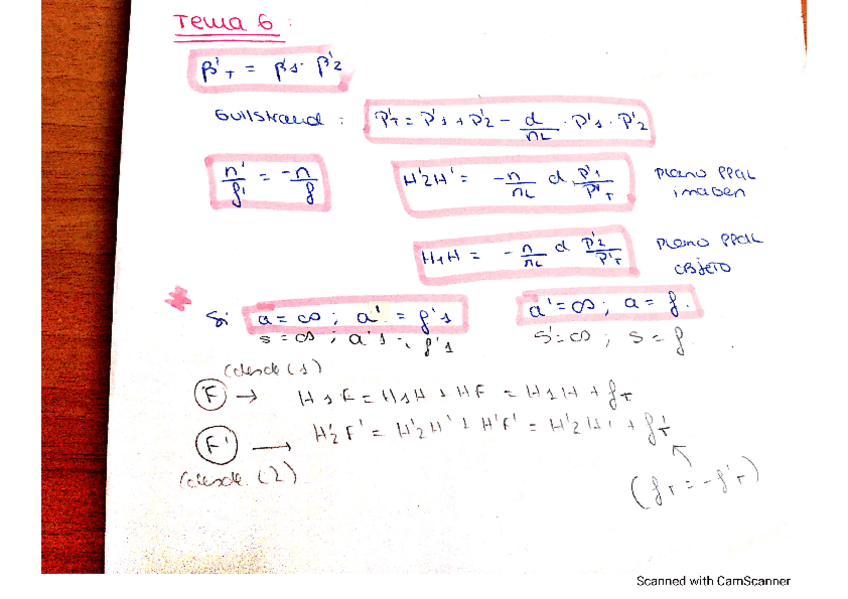 Tema 6:
β'T = β'1 · β'2
Gullstrand: P'T = P'1 + P'2 - d/nL · P'1 · P'2
n'/f' = -n/f
H'2H' = -n/nL d P'1/P'T plano ppal imagen
H1H = -n/nL d P'2/P'T plano ppal objeto
* Si a = ∞ ; a' = f'1 a' = ∞ ; a = f.
s = ∞ ; a's = f's s' = ∞ ; s = f
(desde (1)
F → H1F = H1H + HF = H1H + fT
F' → H'2F' = H'2H' + H'F' = H'2H' + f'T
(desde (2)
(fT = -f'T)
Scanned with CamScanner